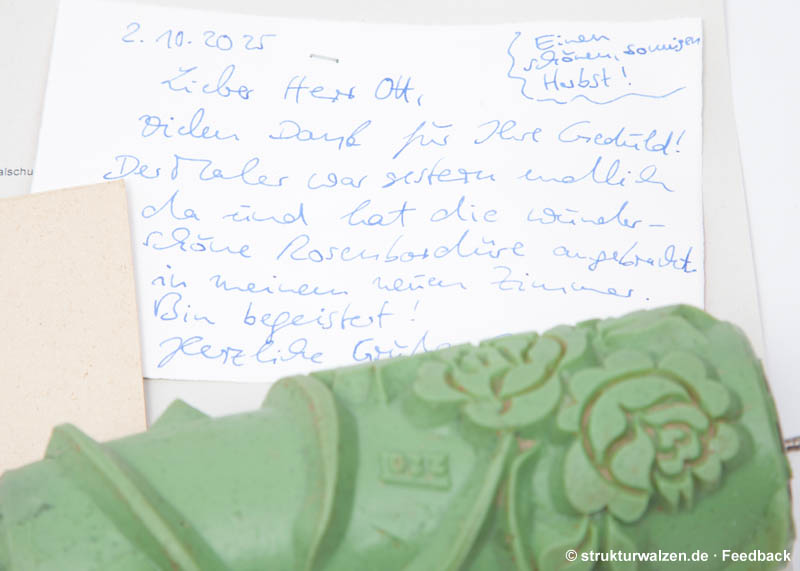 2.10.2025
Einen
schönen, sonnigen
Herbst!
Lieber Herr Ott,
Vielen Dank für Ihre Geduld!
Der Maler war gestern endlich
da und hat die wunder-
schöne Rosenbordüre angebracht
in meinem neuen Zimmer.
Bin begeistert!
Herzliche Grüße
alschu
© strukturwalzen.de · Feedback